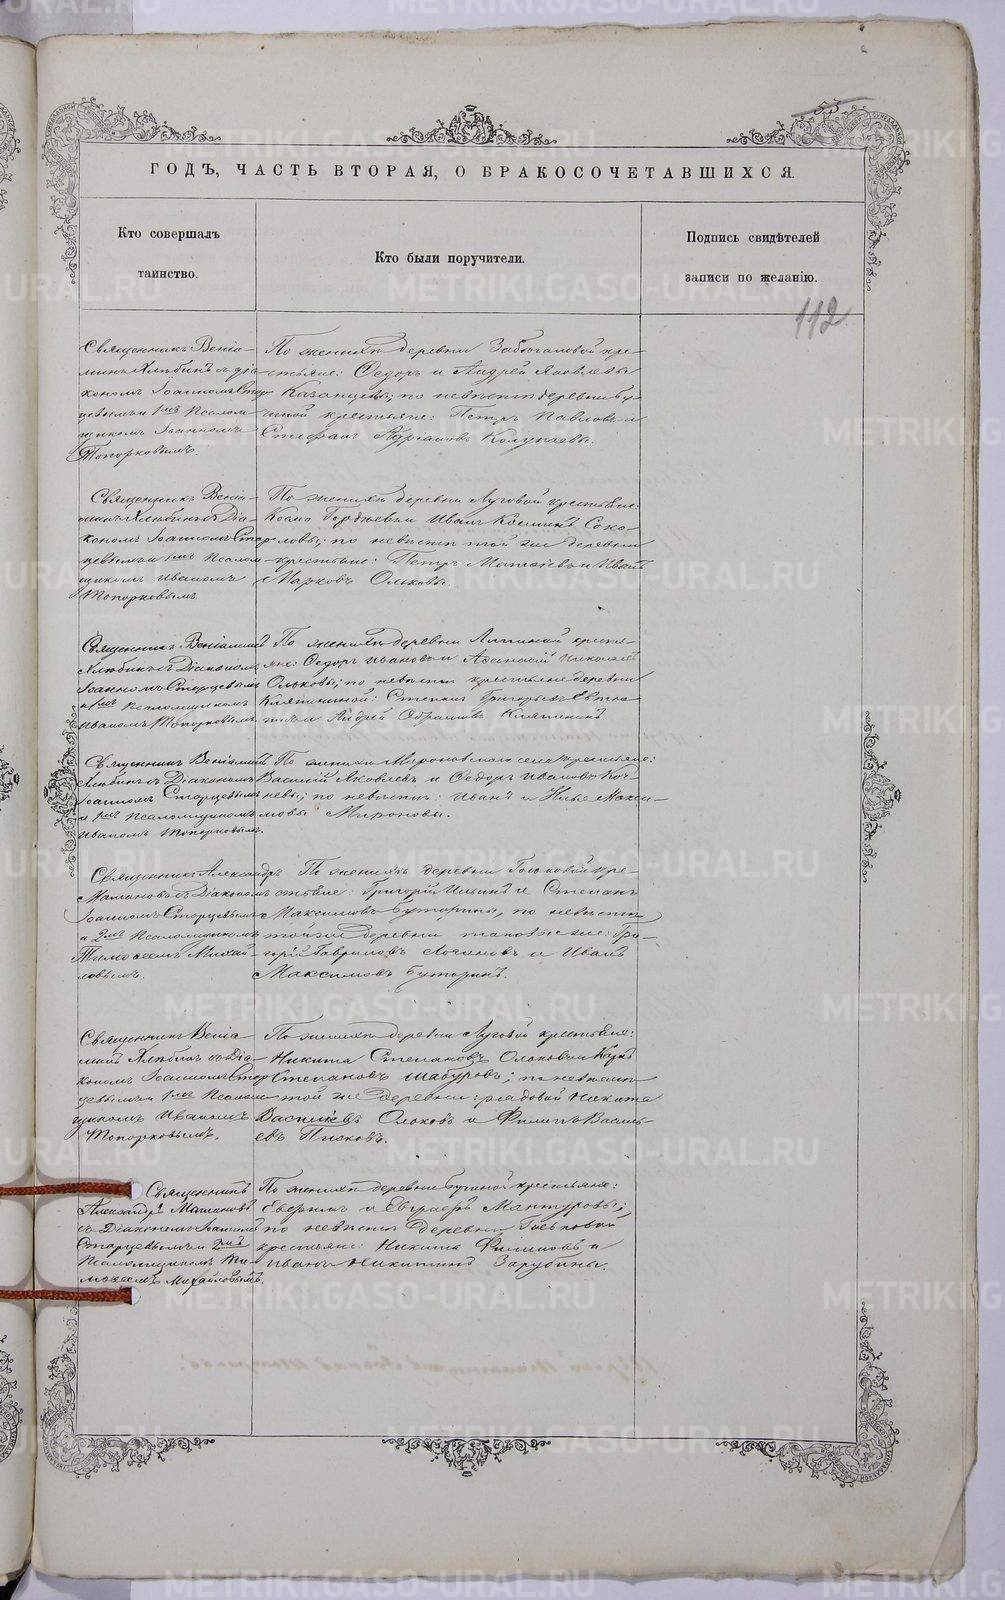 53
ГОДЪ, ЧАСТЬ ВТОРАЯ, О БРАКОСОЧЕТАВШИХСЯ.
Кто совершалъ
таинство.
Кто были поручители.
Подпись свидѣтелей
записи по желанію.
112
Священникъ Веніа-
минъ Хлѣбинъ съ діа-
кономъ Іоанномъ Стар
цевымъ и 1мъ Псалом-
щикомъ Іоанномъ
Топорковымъ.
По женихѣ деревни кре-
стьяне: Ѳедоръ и Андрей Яковлевы
Казанцевы; по невѣстѣ деревни Бу-
чиной крестьяне: Петръ Павловъ и
Стефанъ Адріановъ Колупаевы.
Священникъ Веніа-
минъ Хлѣбинъ съ Діа-
кономъ Іоанномъ Стар
цевымъ и 1мъ Псалом
щикомъ Иваномъ
Топорковымъ
По женихѣ деревни Луговой крестьяне:
Козма Гордѣевъ и Иванъ Косминъ Соко-
ловы; по невѣстѣ той же деревни
крестьяне: Петръ Матвѣевъ и Иванъ
Марковъ Ольковы.
Священникъ Веніаминъ
Хлѣбинъ съ Діакономъ
Іоанномъ Старцевымъ
и 1мъ Псаломщикомъ
Иваномъ Топорковымъ
По женихѣ деревни Липиной кресть-
яне: Ѳедоръ Ивановъ и Аѳанасій Николаевъ
Ольковы; по невѣстѣ крестьяне деревни
Степанъ Григорьевъ
и Андрей Абрамовъ
Священникъ Веніаминъ
Хлѣбинъ съ Діакономъ
Іоанномъ Старцевымъ
и 1мъ Псаломщикомъ
Иваномъ Топорковымъ.
По женихѣ Мироновскаго села крестьяне:
Василій Яковлевъ и Ѳедоръ Ивановъ Коч-
невы; по невѣстѣ: Иванъ и Илья Макси-
мовы Мироновы.
Священникъ Александръ
Матановъ съ Діакономъ
Іоанномъ Старцевымъ
и 2мъ Псаломщикомъ
Тимоѳеемъ Михай-
ловымъ.
По женихѣ деревни кре-
стьяне: Григорій Ильинъ и Степанъ
Максимовъ Буторины, по невѣстѣ
той же деревни таковые же: Гри-
горій Гавриловъ Логиновъ и Иванъ
Максимовъ Буторинъ.
Священникъ Веніа
минъ Хлѣбинъ съ Діа-
кономъ Іоанномъ Стар
цевымъ и 1мъ Псалом
щикомъ Иваномъ
Топорковымъ.
По женихѣ деревни Луговой крестьяне:
Никита Степановъ Ольковъ и
Степановъ Шабуровъ; по невѣстѣ
той же деревни: рядовой Никита
Васильевъ Ольковъ и Филипъ Василь-
евъ Писковъ.
Священникъ
Александръ Матановъ
съ Діакономъ Іоанномъ
Старцевымъ и 2мъ
Псаломщикомъ Ти-
моѳеемъ Михайловымъ.
По женихѣ деревни Бучиной крестьяне:
Ефимъ и Евграфъ Мантуровы;
по невѣстѣ деревни
крестьяне: Никита Филиповъ и
Иванъ Никитинъ Зарубины.
METRIKI.GASO-URAL.RU